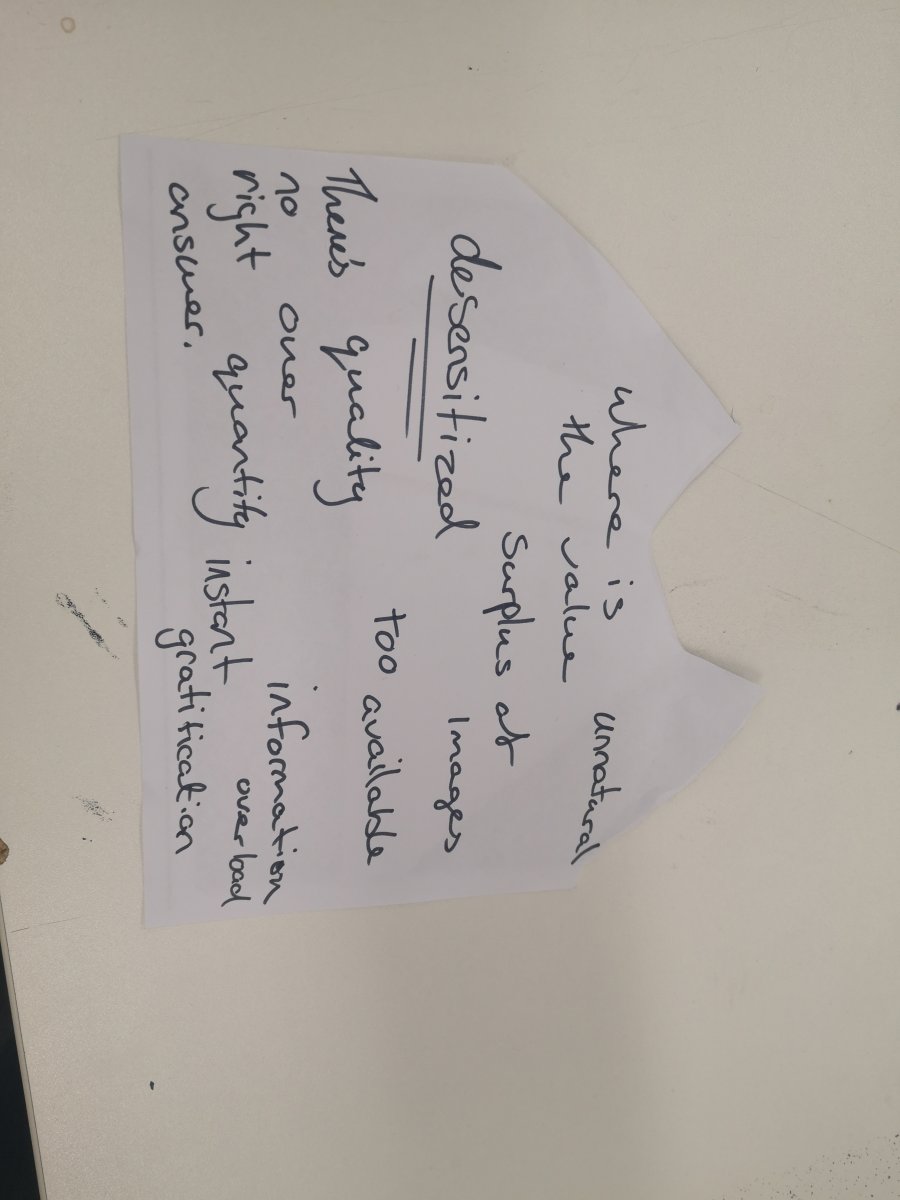 where is
the value
unnatural
surplus of
Images
desensitized
too available
There's
no
right
answer.
quality
over
quantity
information
overload
instant
gratification